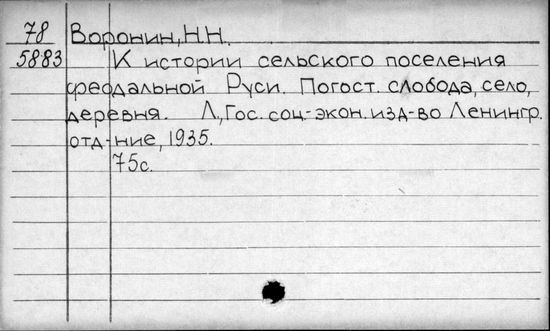 78 Воронин, Н.Н.
5883 К истории сельского поселения
феодальной Руси. Погост. слобода, село,
деревня. Л., Гос. соц-экон. изд-во Ленингр.
отд-ние, 1935.
75с.